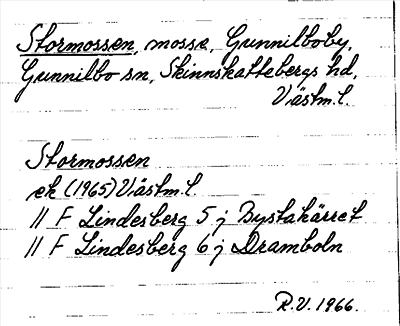 Stormossen, mosse, Gunnilboby,
Gunnilbo sn, Skinnskattebergs hd,
Västm.l.
Stormossen
ek (1965) Västm.l.
// F Lindesberg 5 j Bystakärret
// F Lindesberg 6 j Dramboln
R.V. 1966.